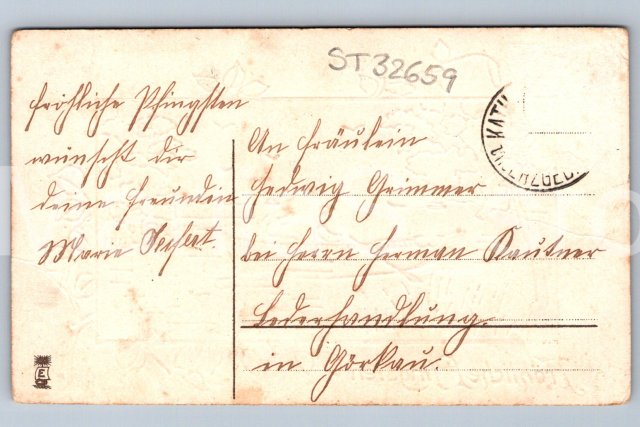 ST32659
fröhliche Pfingsten
wünscht dir
deine Freundin
Marie Seifert.
An Fräulein
Hedwig Grimmer
bei Herrn Herman Kautner
Lederhandlung.
in Görkau.
KATH
ERZGEB.
E